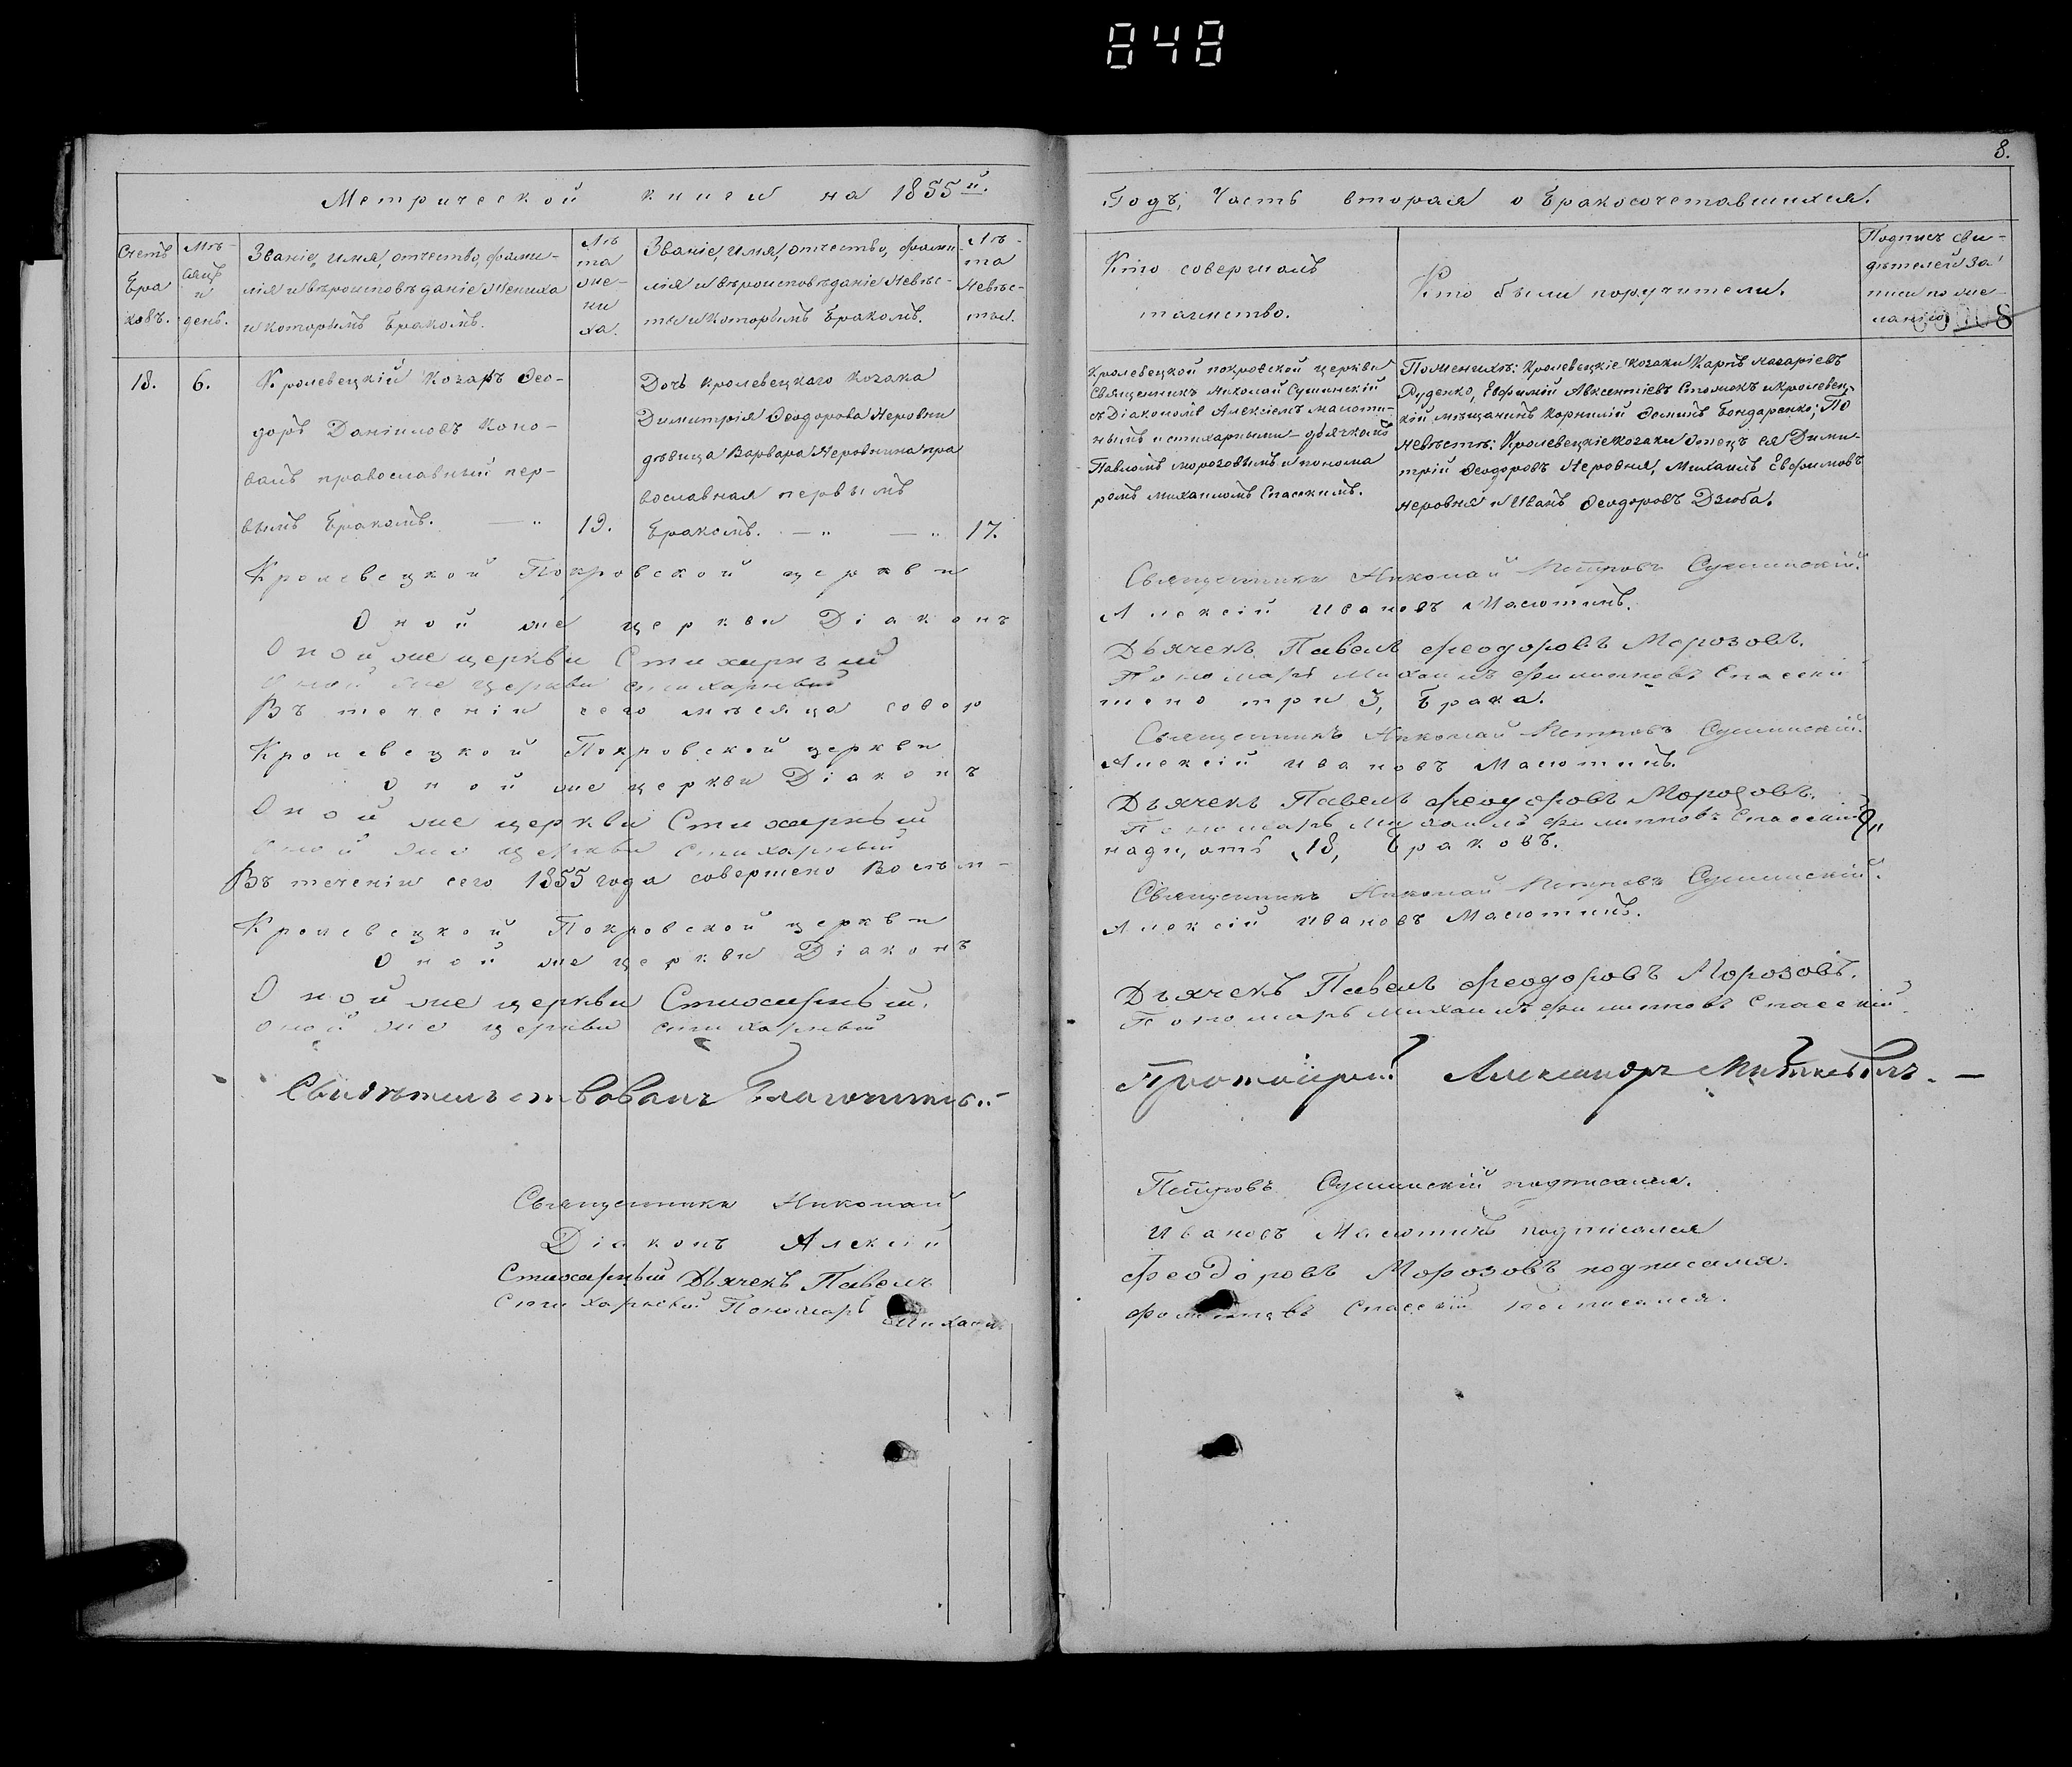 848
8.
Метрической книги на 1855й.
Годъ, Часть вторая о Бракосочетавшихся.
Счетъ Браковъ.
Мѣсяцъ и день.
Званіе, имя, отчество, фами-
лія и вѣроисповѣданіе Жениха
и которымъ Бракомъ.
Лѣта жениха.
Званіе, имя, отчество, фами-
лія и вѣроисповѣданіе Невѣс-
ты и которымъ Бракомъ.
Лѣта Невѣсты.
Кто совершалъ
таинство.
Кто были поручители.
Подписъ сви-
дѣтелей за-
писи по же-
ланію.
00008
18.
6.
Кролевецкій Козакъ Ѳео-
доръ Даніиловъ Коно-
валъ православный пер-
вымъ Бракомъ.
19.
Дочь кролевецкаго козака
Димитрія Ѳеодорова Неровни
дѣвица Варвара Неровнина пра
вославная первымъ
Бракомъ.
17.
Кролевецкой покровской церкви
Священникъ Николай Сушинскій
съ Діакономъ Алексіемъ Малюти-
нымъ и стихарными — дьячкомъ
Павломъ морозовымъ и понома
ромъ михаиломъ Спасскимъ.
По женихѣ: Кролевецкіе козаки Карпъ Назаріевъ
Руденко, Евфимій Авксентіевъ и кролевец-
кій мѣщанинъ Корнилій Бондаренко; По
невѣстѣ: Кролевецкіе козаки отецъ ея Дими-
трій Ѳеодоровъ Неровня, Михаилъ Евфимовъ
неровня и Иванъ Ѳеодоровъ Дзюба.
Кролевецкой Покровской церкви
Священникъ Николай Петровъ Сушинскій.
Оной же церкви Діаконъ
Алексій Ивановъ Малютинъ.
Оной же церкви Стихарный
Дьячекъ Павелъ Феодоровъ Морозовъ.
Оной же церкви стихарный
Пономарь Михаилъ Филиповъ Спасскій
Въ теченіи сего мѣсяца совер
шено три 3, Брака.
Кролевецкой Покровской церкви
Священникъ Николай Петровъ Сушинскій.
Оной же церкви Діаконъ
Алексій Ивановъ Малютинъ.
Оной же церкви Стихарный
Дьячекъ Павелъ Феодоровъ Морозовъ.
Оной же церкви стихарный
Пономарь Михаилъ Филиповъ Спасскій
Въ теченіи сего 1855 года совершено Восѣм-
надцать 18, Браковъ.
Кролевецкой Покровской церкви
Священникъ Николай Петровъ Сушинскій.
Оной же церкви Діаконъ
Алексій Ивановъ Малютинъ.
Оной же церкви Стихарный.
Дьячекъ Павелъ Феодоровъ Морозовъ.
Оной же церкви стихарный
Пономарь Михаилъ Филиповъ Спасскій
Свидѣтельствовалъ Благочинный.
Протоіерей Александръ
Священникъ Николай
Петровъ Сушинскій подписался.
Діаконъ Алексій
Ивановъ Малютинъ подписался
Стихарный Дьячекъ Павелъ
Феодоровъ Морозовъ подписался.
Стихарный Пономарь Михаилъ
Филиповъ Спасскій подписался.